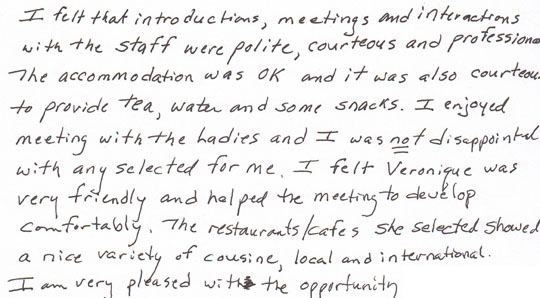 I felt that introductions, meetings and interactions
with the staff were polite, courteous and professiona
The accommodation was OK and it was also courteou
to provide tea, water and some snacks. I enjoyed
meeting with the ladies and I was not disappointed
with any selected for me. I felt Veronique was
very friendly and helped the meeting to develop
comfortably. The restaurants/cafes she selected showed
a nice variety of cousine, local and international.
I am very pleased with the opportunity